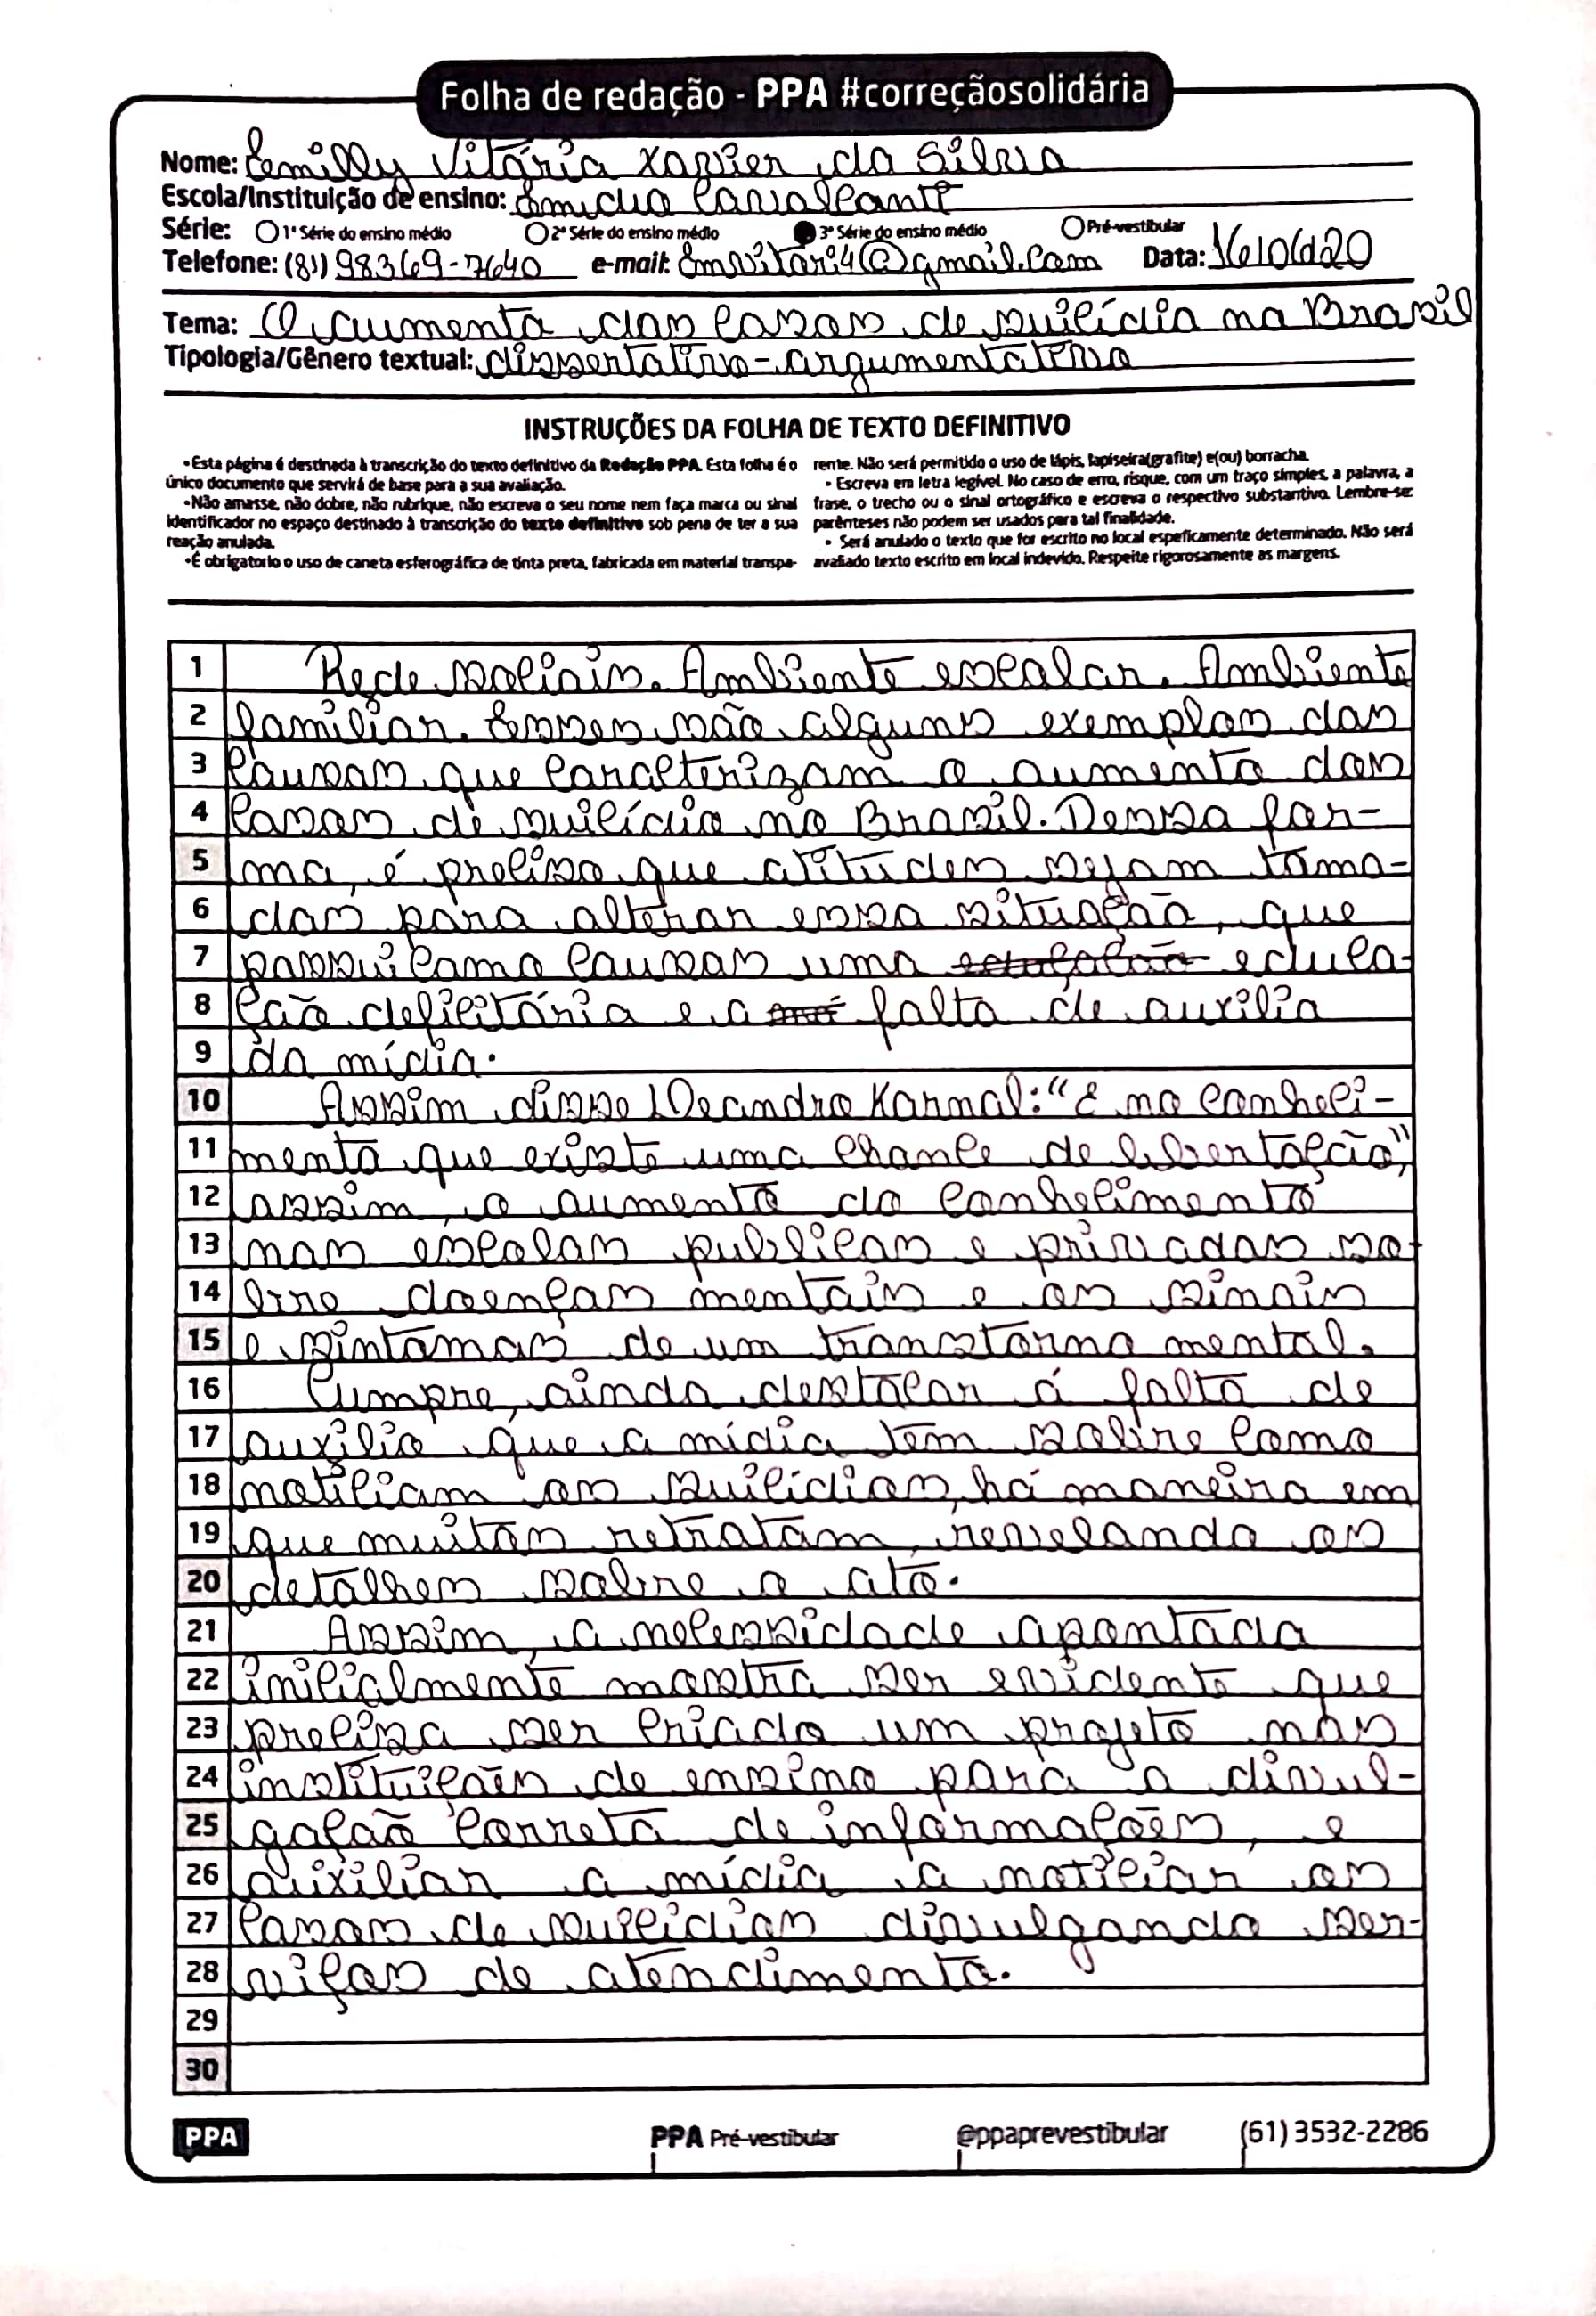 Folha de redação - PPA #correçãosolidária
Nome: Emilly Vitória Xavier da Silva
Escola/Instituição de ensino: Emidio Cavalcanti
Série: 1ª Série do ensino médio 2ª Série do ensino médio 3ª Série do ensino médio Pré-vestibular
Telefone: (81) 98369-7640 e-mail: Emvitori4@gmail.com Data: 16/06/20
Tema: O aumento dos casos de suicídio no Brasil
Tipologia/Gênero textual: dissertativo-argumentativo
INSTRUÇÕES DA FOLHA DE TEXTO DEFINITIVO
•Esta página é destinada à transcrição do texto definitivo da Redação PPA. Esta folha é o
único documento que servirá de base para a sua avaliação.
•Não amasse, não dobre, não rubrique, não escreva o seu nome nem faça marca ou sinal
identificador no espaço destinado à transcrição do texto definitivo sob pena de ter a sua
reação anulada.
•É obrigatorio o uso de caneta esferográfica de tinta preta, fabricada em material transpa-
rente. Não será permitido o uso de lápis, lapiseira(grafite) e(ou) borracha.
• Escreva em letra legível. No caso de erro, risque, com um traço simples, a palavra, a
frase, o trecho ou o sinal ortográfico e escreva o respectivo substantivo. Lembre-se:
parênteses não podem ser usados para tal finalidade.
• Será anulado o texto que for escrito no local espeficamente determinado. Não será
avaliado texto escrito em local indevido. Respeite rigorosamente as margens.
1 Rede sociais. Ambiente escolar. Ambiente
2 familiar. Esses são alguns exemplos das
3 causas que caracterizam o aumento dos
4 casos de suicídio no Brasil. Dessa for-
5 ma, é preciso que atitudes sejam toma-
6 das para alterar essa situação, que
7 possui como causas uma educa-
8 ção deficitária e a falta de auxilio
9 da mídia.
10 Assim disse Leandro Karnal: "É no conheci-
11 mento que existe uma chance de libertação",
12 assim, o aumento do conhecimento
13 nas escolas publicas e privadas so-
14 bre doenças mentais e os sinais
15 e sintomas de um transtorno mental.
16 Cumpre, ainda destacar á falta de
17 auxilio que a mídia tem sobre como
18 noticiam os suicidios, há maneira em
19 que muitos retratam, revelando os
20 detalhes sobre o ato.
21 Assim, a necessidade apontada
22 inicialmente mostra ser evidente que
23 precisa ser criado um projeto nas
24 instituições de ensino para a divul-
25 gação correta de informações, e
26 auxiliar a mídia a noticiar os
27 casos de suicidios divulgando ser-
28 viços de atendimento.
29
30
PPA PPA Pré-vestibular @ppaprevestibular (61) 3532-2286